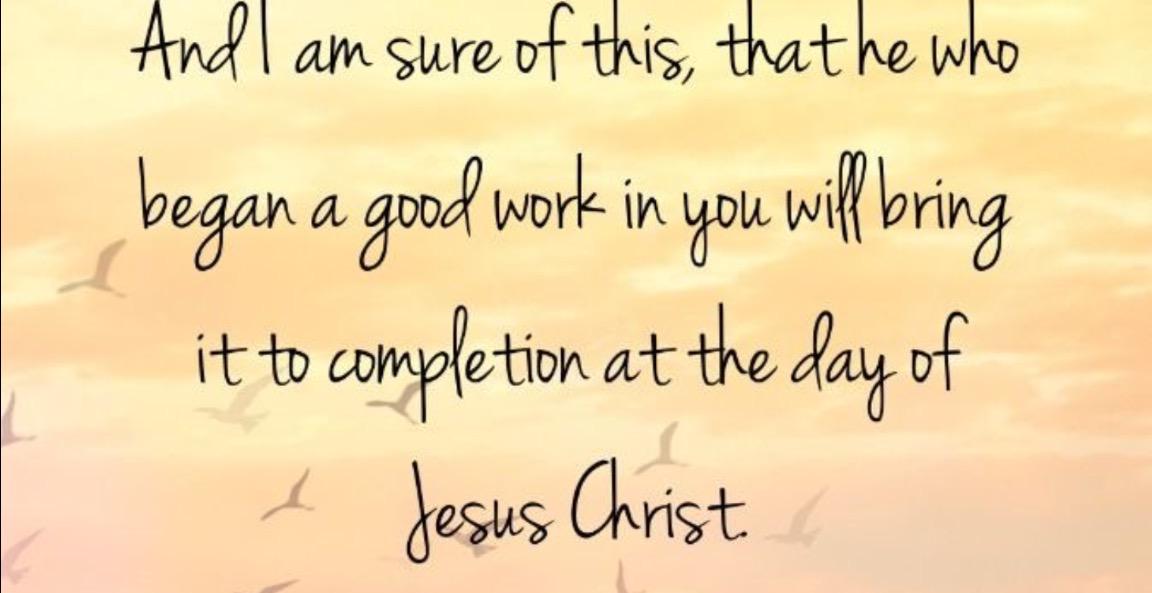 And I am sure of this, that he who
began a good work in you will bring
it to completion at the day of
Jesus Christ.